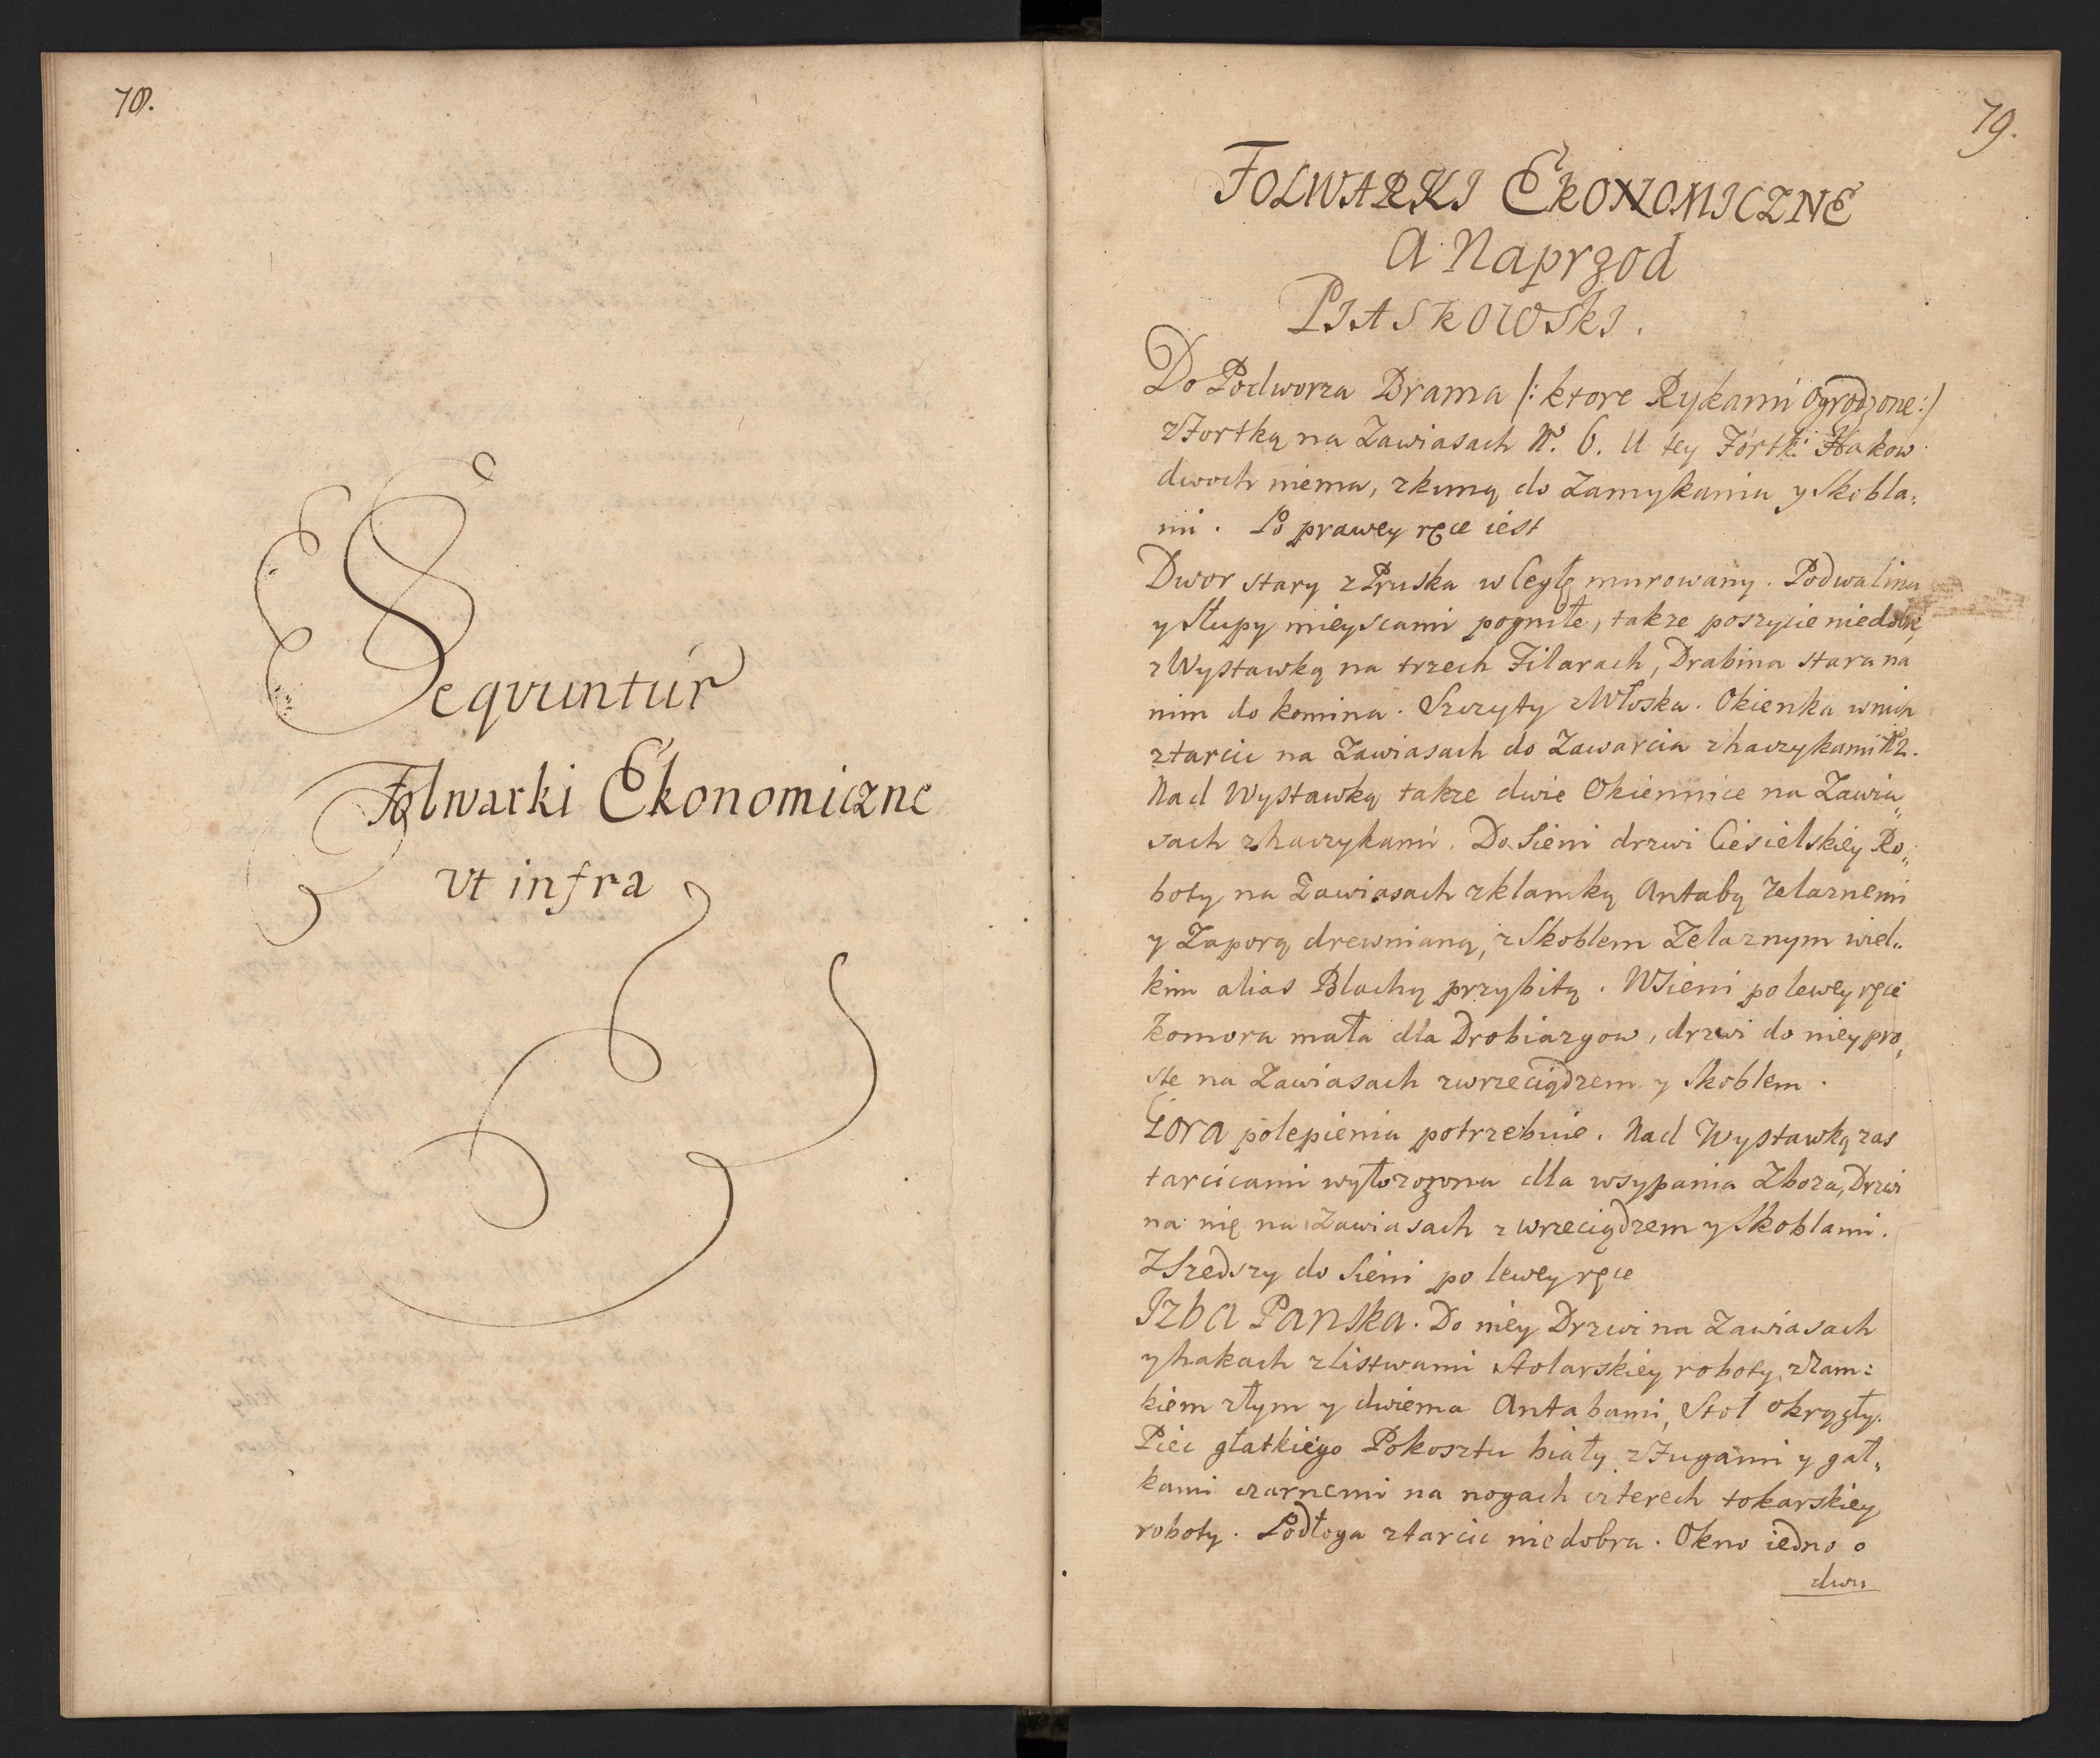 78.
Sequuntúr
Folwarki Ekonomiczne
vt infra
79.
FOLWARKI EKONOMICZNE
A Naprzod
PIASKOWSKI.
Do Podworza Brama /: ktore Rykami ogrodzone :/
z Fortką na Zawiasach N° 6. U tey Fórtki Hakow
dwoch niema, z kuną do Zamykania y Skobla„
mi. Po prawey ręce iest
Dwor stary z Pruska w Cegłę murowany. Podwalina
y Słupy mieyscami pogniłe, takze poszycie niedobre
z Wystawką na trzech Filarach, Drabina stara na
nim do komina. Szczyty z Włoska. Okienka w nich
z tarcic na Zawiasach do Zawarcia z haczykami N° 2.
Nad Wystawką takze dwie Okiennice na Zawia„
sach z haczykami. Do Sieni drzwi Ciesielskiey Ro„
boty na Zawiasach z klamką Antabą Zelaznemi
y Zaporą drewnianą, z Skoblem Zelaznym wiel„
kim alias Blachą przybitą. W Sieni po lewey ręce
Komora mała dla Drobiazgow, drzwi do niey pro„
ste na Zawiasach z wrzeciądzem y Skoblem.
Gora polepienia potrzebuie. Nad Wystawką zas
tarcicami wyłozozona dla wsypania Zboza, Drzwi
na nię na Zawiasach z wrzeciądzem y Skoblami.
Zszedszy do Sieni po lewey ręce
Izba Panska. Do niey Drzwi na Zawiasach
y hakach z listwami Stolarskiey roboty, z Zam:
kiem złym y dwiema Antabami, Stoł okrągły.
Piec głatkiego Pokosztu biały z Fugami y gał„
kami czarnemi na nogach czterech tokarskiey
roboty. Podłoga z tarcic niedobra. Okno iedno o
dwu